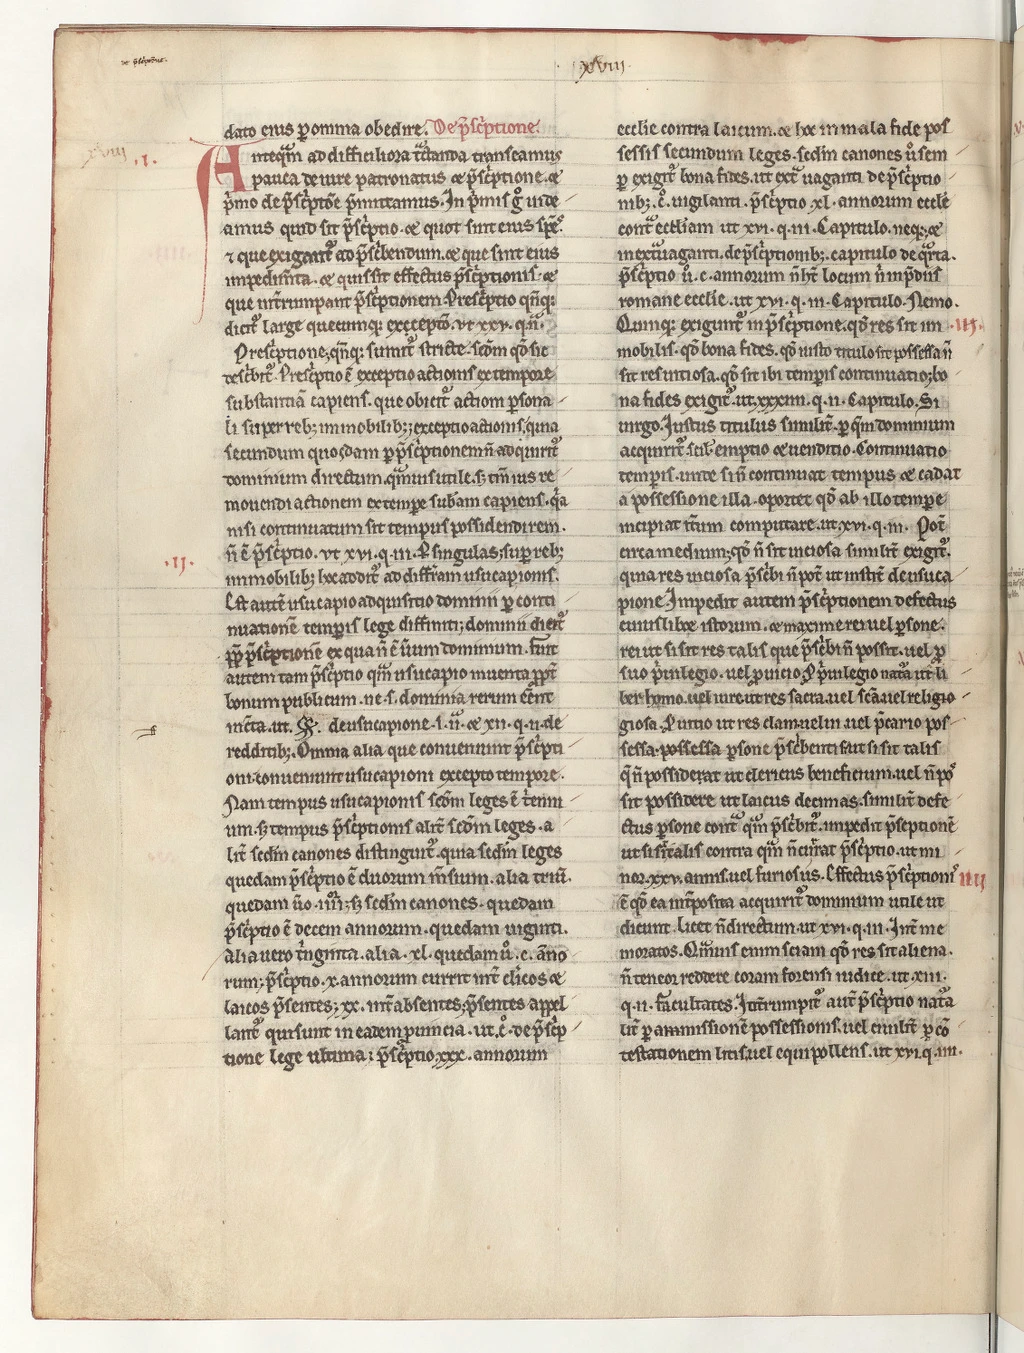 de p̄sc̄ptōne.
.xviii.
dato eius ꝑ omnia obedire. De p̄sc̄ptione.
xviii .i.
Anteqm̄ ad difficiliora tͣctanda transeamus
pauca de iure patronatus ⁊ p̄sc̄ptione. ⁊
pͥmo de p̄sc̄ptōe p̄mittamus. In pͥmis gͦ uide
amus quid sit p̄sc̄ptio. ⁊ quot sunt eius spē.
⁊ que exigantᷣ ad p̄sc̄bendum. ⁊ que sint eius
impedimta. ⁊ quis sit effectus p̄sc̄ptionis. ⁊
que int̄rumpant p̄sc̄ptionem. Presc̄ptio qn̄qꝫ
dicitᷣ large quecumqꝫ exceptō. vt xxv. q. ii.
Presc̄ptione qn̄qꝫ sumitᷣ stricte. scd̄m qd̄ sic
desc̄bitᷣ. Presc̄ptio ē exceptio actionis ex tempore
substantiā capiens. que obicitᷣ actioni ꝑsona
li super rebꝫ immobilibꝫ; exceptio actionis, quia
secundum quosdam ꝑ p̄sc̄ptionem n̄ adquiritᷣ
dominium directum. qm̄uis utile. sꝫ tm̄ ius re
mouendi actionem ex tempe sub̄am capiens. qͥa
nisi continuatum sit tempus possidendi rem.
.ii. n̄ ē p̄sc̄ptio. vt xvi. q. iii. § singulas; suꝑ rebꝫ
immobilibꝫ hoc additᷣ ad diffr̄am usucapionis.
Est autē usucapio adquisitio dominii ꝑ conti
nuationē tempis lege diffiniti; dominii dicitᷣ
ꝓpꝑ p̄sc̄ptionē ex qua n̄ ē ūum dominium. Fuit
autem tam p̄sc̄ptio qm̄ usucapio inuenta ꝓpt̄
bonum publicum. ne .s. dominia rerum eēnt
inc̄ta. ut. ff. de usucapione. l. ii. ⁊ xii. q. ii. de
redditibꝫ. Omnia alia que conueniunt p̄sc̄pti
oni. conueniunt usucapioni excepto tempore.
Nam tempus usucapionis scd̄m leges ē t̄enni
um. sꝫ tempus p̄sc̄ptionis alit̄ scd̄m leges. a
lit̄ scd̄m canones distinguitᷣ. quia scd̄m leges
quedam p̄sc̄ptio ē duorum m̄sium. alia triū.
quedam ūo .iiii; sꝫ scd̄m canones. quedam
p̄sc̄ptio ē decem annorum. quedam uiginti.
alia uero tͥginta. alia .xl. quedam ū. c. āno
rum; p̄sc̄ptio .x. annorum currit int̄ cl̄icos ⁊
laicos p̄sentes; xx. int̄ absentes; p̄sentes appel
lantᷣ qui sunt in eadem ꝓuincia. ut. C. de p̄sc̄p
tione lege ultima; p̄sc̄ptio .xxx. annorum
ecclie contra laicum. ⁊ hoc in mala fide pos
sessis secundum leges. scd̄m canones ū sem
ꝑ exigitᷣ bona fides. ut extͣ uaganti de p̄sc̄ptio
nibꝫ. c. uigilanti. p̄sc̄ptio xl. annorum eccl̄e
contͣ eccl̄iam ut xvi. q. iii. Capitulo. neqꝫ. ⁊
in extͣuaganti. de p̄sc̄ptionibꝫ. capitulo de qͣrta.
p̄sc̄ptio ū. c. annorum n̄ hꝫ locum n̄ in p̄diis
romane ecclie. ut xvi. q. iii. Capitulo. Nemo.
Quinqꝫ exiguntᷣ in p̄sc̄ptione. qd̄ res sit im .iii.
mobilis. qd̄ bona fides. qd̄ iusto titulo sit possessa n̄
sit res uitiosa. qd̄ sit ibi tempis continuatio; bo
na fides exigitᷣ. ut xxxiiii. q. ii. Capitulo. Si
uirgo. Justus titulus similit̄. ꝑ qm̄ dominium
acquiritᷣ scil. emptio ⁊ uenditio. Continuatio
tempis. unde si n̄ continuat tempus ⁊ cadat
a possessione illa. oportet qd̄ ab illo tempe
incipiat itͥum computare. ut xvi. q. iii. Pot̄
circa medium; qd̄ n̄ sit uiciosa similit̄ exigitᷣ.
quia res uiciosa p̄sc̄bi n̄ pot̄ ut instit̄ de usuca
pione. Impedit autem p̄sc̄ptionem defectus
cuiuslibꝫ istorum. ⁊ maxime rei uel ꝑsone.
rei ut si sit res talis que p̄sc̄bi n̄ possit. uel ꝑ
suo pͥuilegio. uel ꝑ uicio. Ꝑ pͥuilegio natͣa ut li
ber homo. uel iure ut res sacra. uel scā. uel religio
giosa. Ꝑ uitio ut res clam uel ui uel p̄cario pos
sessa. possessa ꝑsone p̄sc̄bentis ut si sit talis
qi n̄ possiderat ut clericus beneficium. uel n̄ pos
sit possidere ut laicus decimas. similit̄ defe
ctus ꝑsone contͣ qm̄ p̄sc̄bitᷣ. impedit p̄sc̄ptionē
ut si sit talis contra qm̄ n̄ currat p̄sc̄ptio. ut mi
nor .xxv. annis. uel furiosus. Effectus p̄sc̄ptionis .iiii.
ē qd̄ ea int̄posita acquiritᷣ dominium utile ut
dicunt. licet n̄ directum. ut xvi. q. iii. Int̄ me
moratos. Qm̄uis enim sciam qd̄ res sit aliena.
n̄ teneor reddere coram forensi iudice. ut xiii.
q. ii. facultates. Int̄rumpitᷣ aut p̄sc̄ptio natͣa
lit̄ ꝑ ammissionē possessionis. uel ciuilit̄ ꝑ cō
testationem litis. uel equipollens. ut xvi. q. iii.